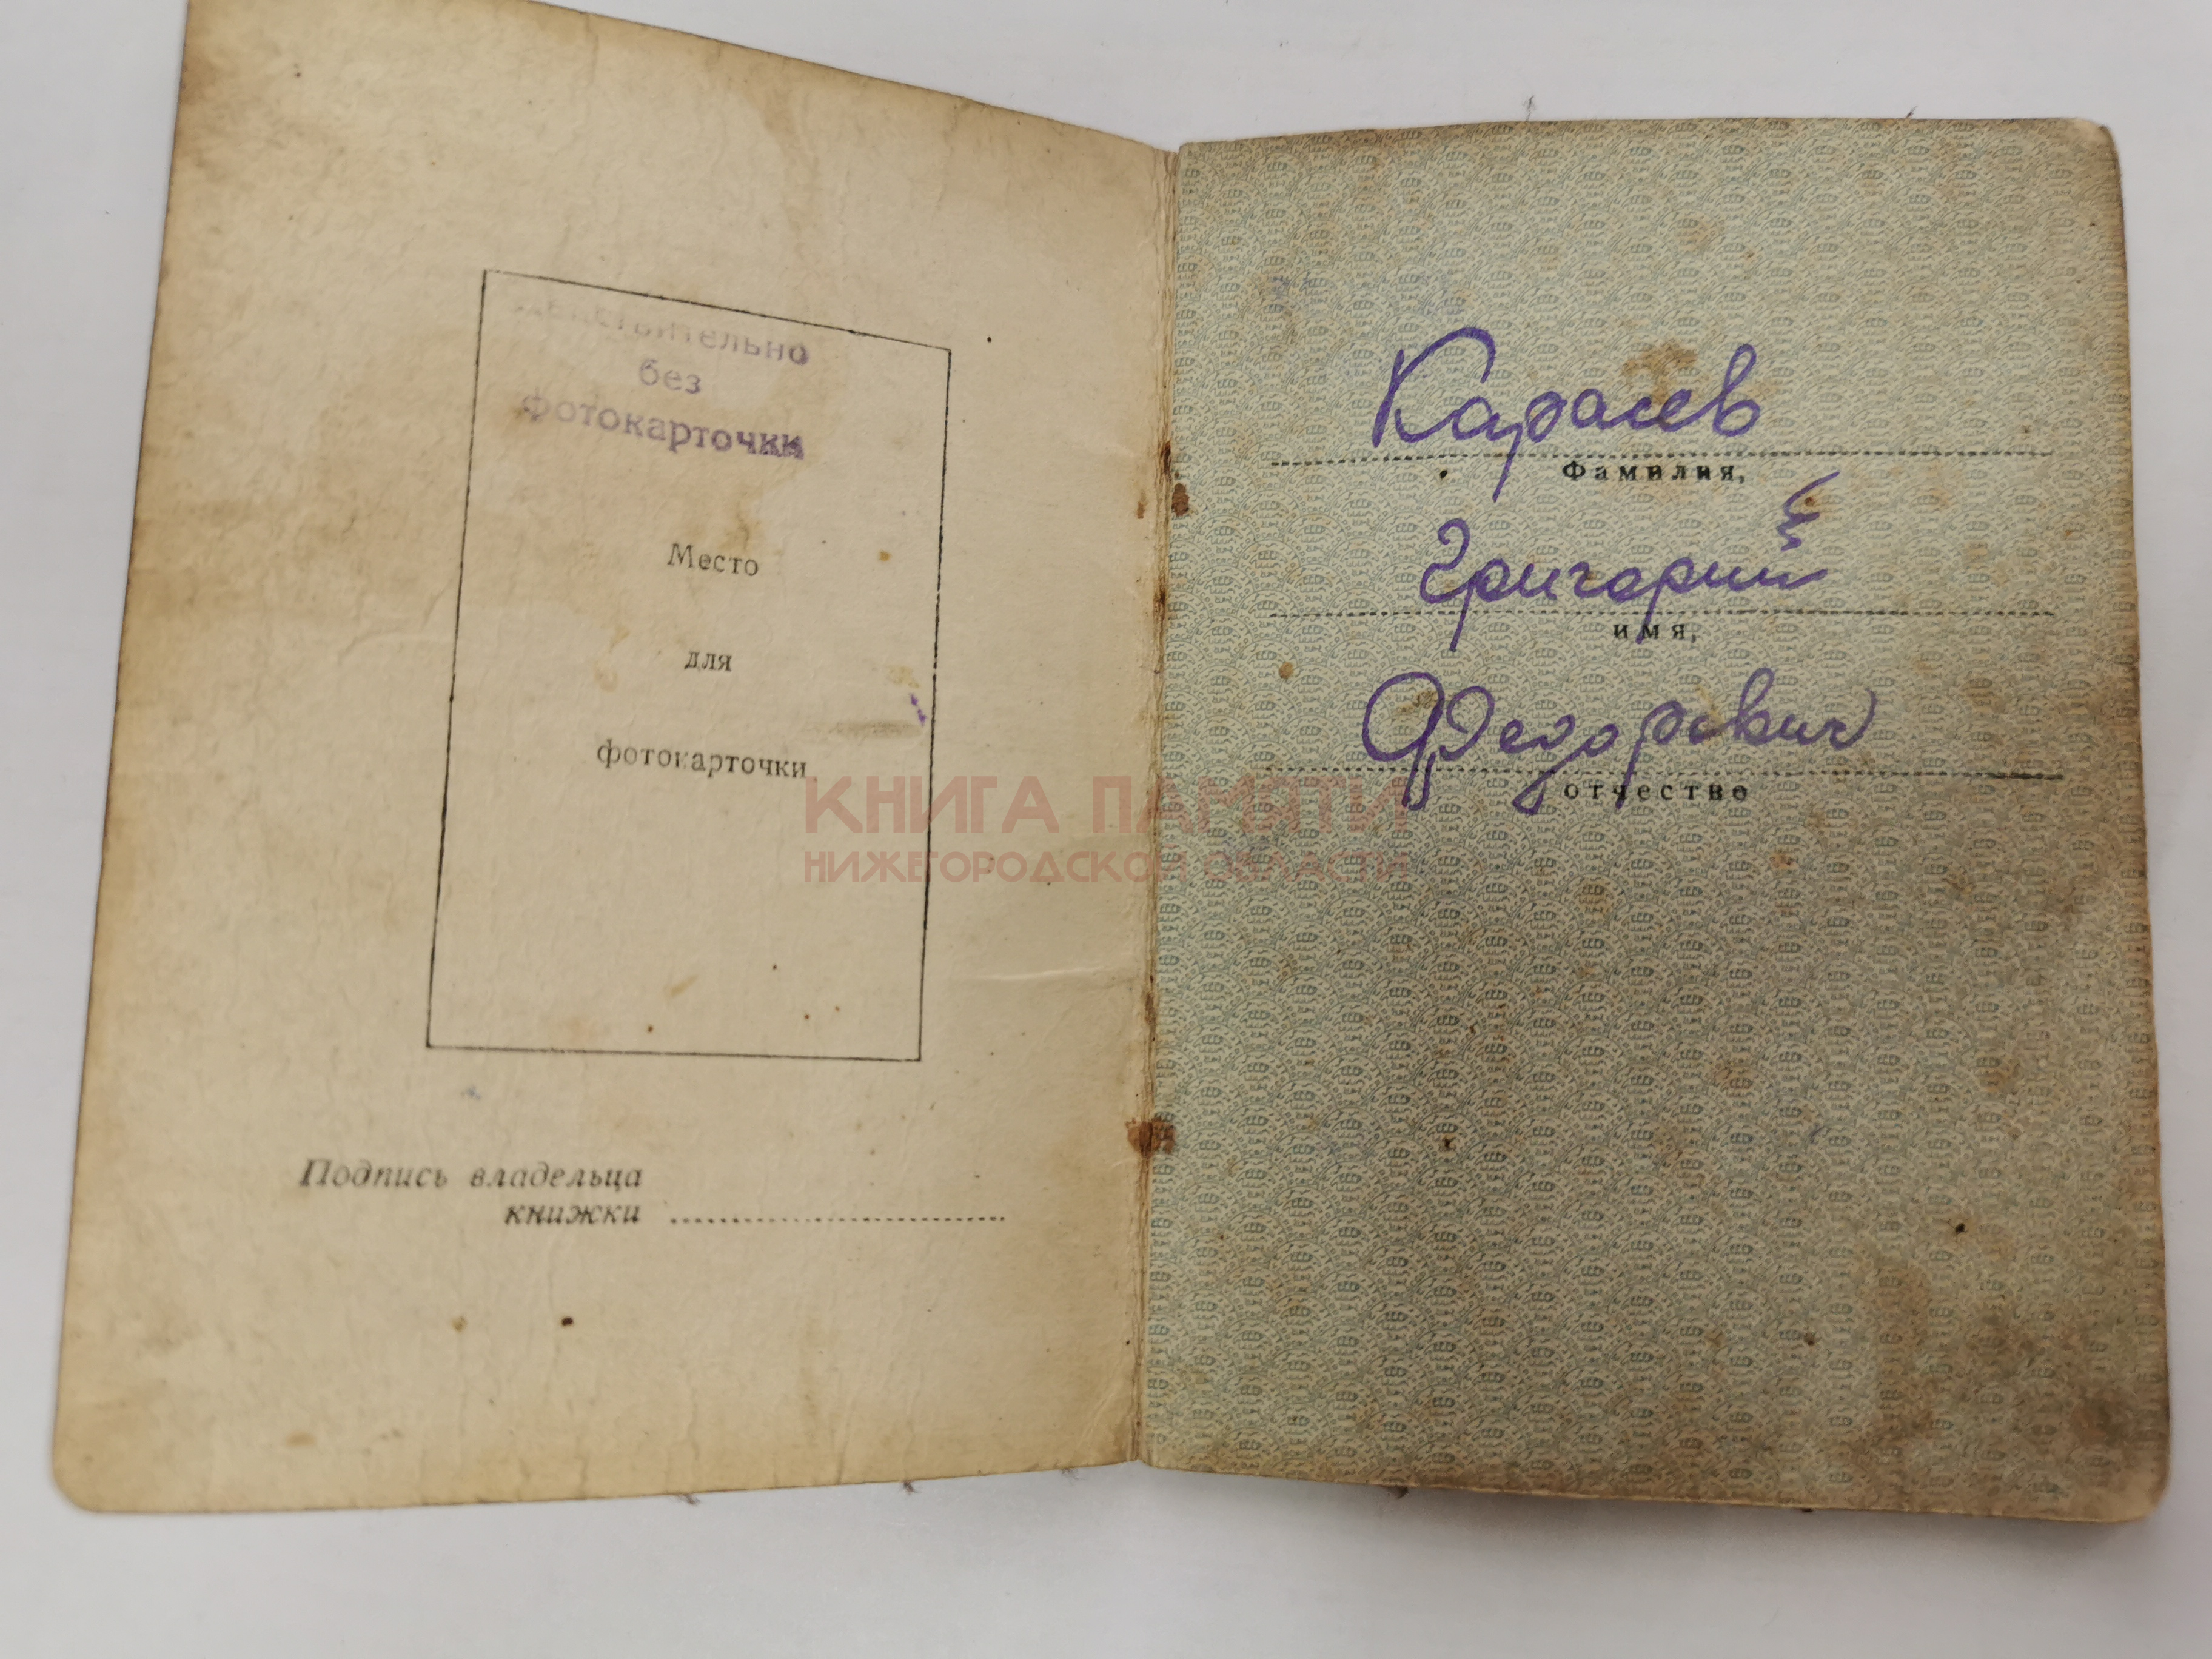 Действительно
без
фотокарточки
Место
для
фотокарточки
Подпись владельца
книжки
Карасев
Фамилия,
Григорий
имя,
Федорович
отчество
КНИГА ПАМЯТИ
НИЖЕГОРОДСКОЙ ОБЛАСТИ